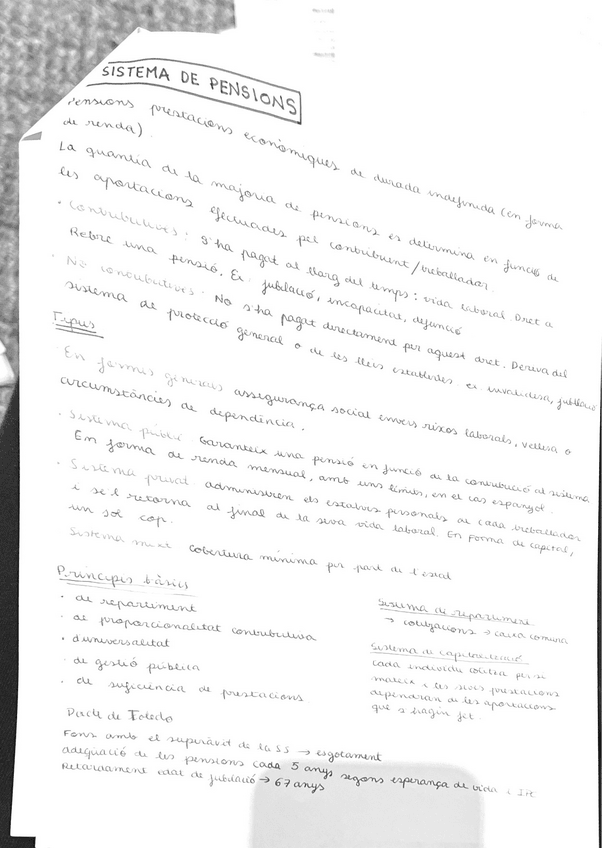 SISTEMA DE PENSIONS
Pensions prestacions econòmiques de durada indefinida (en forma
de renda).
La quantia de la majoria de pensions es determina en funció de
les aportacions efectuades pel contribuent/treballador.
· Contributives: S'ha pagat al llarg del temps: vida laboral. Dret a
Rebre una pensió. Ex: jubilació, incapacitat, defunció
· No contributives: No s'ha pagat directament per aquest dret. Deriva del
sistema de protecció general o de les lleis establertes ex invalidesa, jubilació
Tipus
· En termes generals assegurança social envers riscos laborals, vellesa o
circumstàncies de dependència.
· Sistema públic Garanteix una pensió en funció de la contribució al sistema
En forma de renda mensual, amb uns límits, en el cas espanyol.
· Sistema privat administren els estalvis personals de cada treballador
i se'l retorna al final de la seva vida laboral. En forma de capital,
un sol cop.
Sistema mixt cobertura mínima per part de l'estat
Principis bàsics
· de repartiment
· de proporcionalitat contributiva
· d'universalitat
· de gestió pública
· de suficiència de prestacions
Sistema de repartiment.
→ cotitzacions → caixa comuna
Sistema de capitalització
cada individu cotitza per si
mateix i les seves prestacions
dependran de les aportacions
que s'hagin fet.
Pacte de Toledo
Fons amb el superàvit de la SS → esgotament
adequació de les pensions cada 5 anys segons esperança de vida i
Retardament edat de jubilació → 67 anys